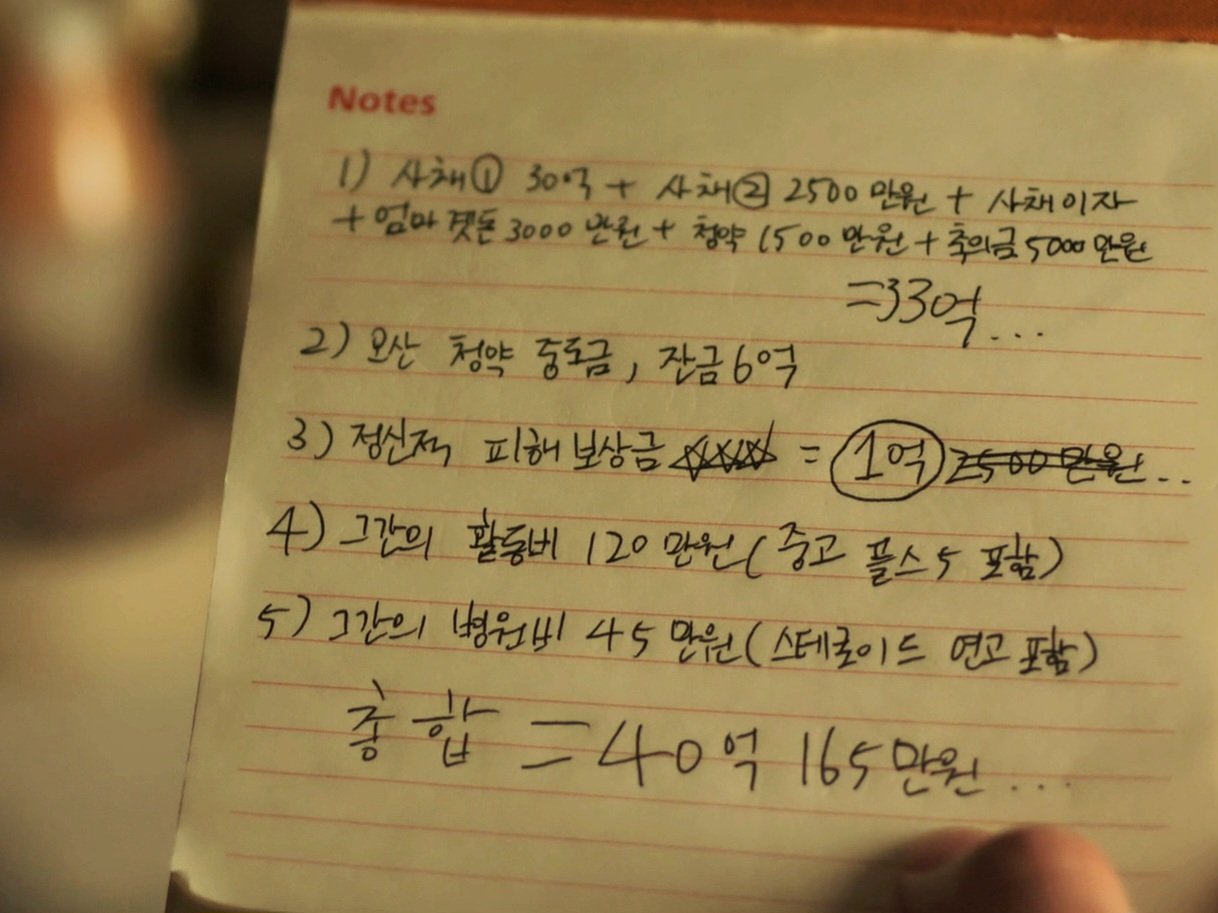 Notes
1) 사채① 30억 + 사채② 2500만원 + 사채이자
+ 엄마 곗돈 3000만원 + 청약 1500만원 + 축의금 5000만원
=33억...
2) 오산 청약 중도금, 잔금 6억
3) 정신적 피해보상금 ☆☆☆ = 1억 2500만원...
4) 그간의 활동비 120만원(중고 플스5 포함)
5) 그간의 병원비 45만원(스테로이드 연고 포함)
총합 = 40억 165만원...